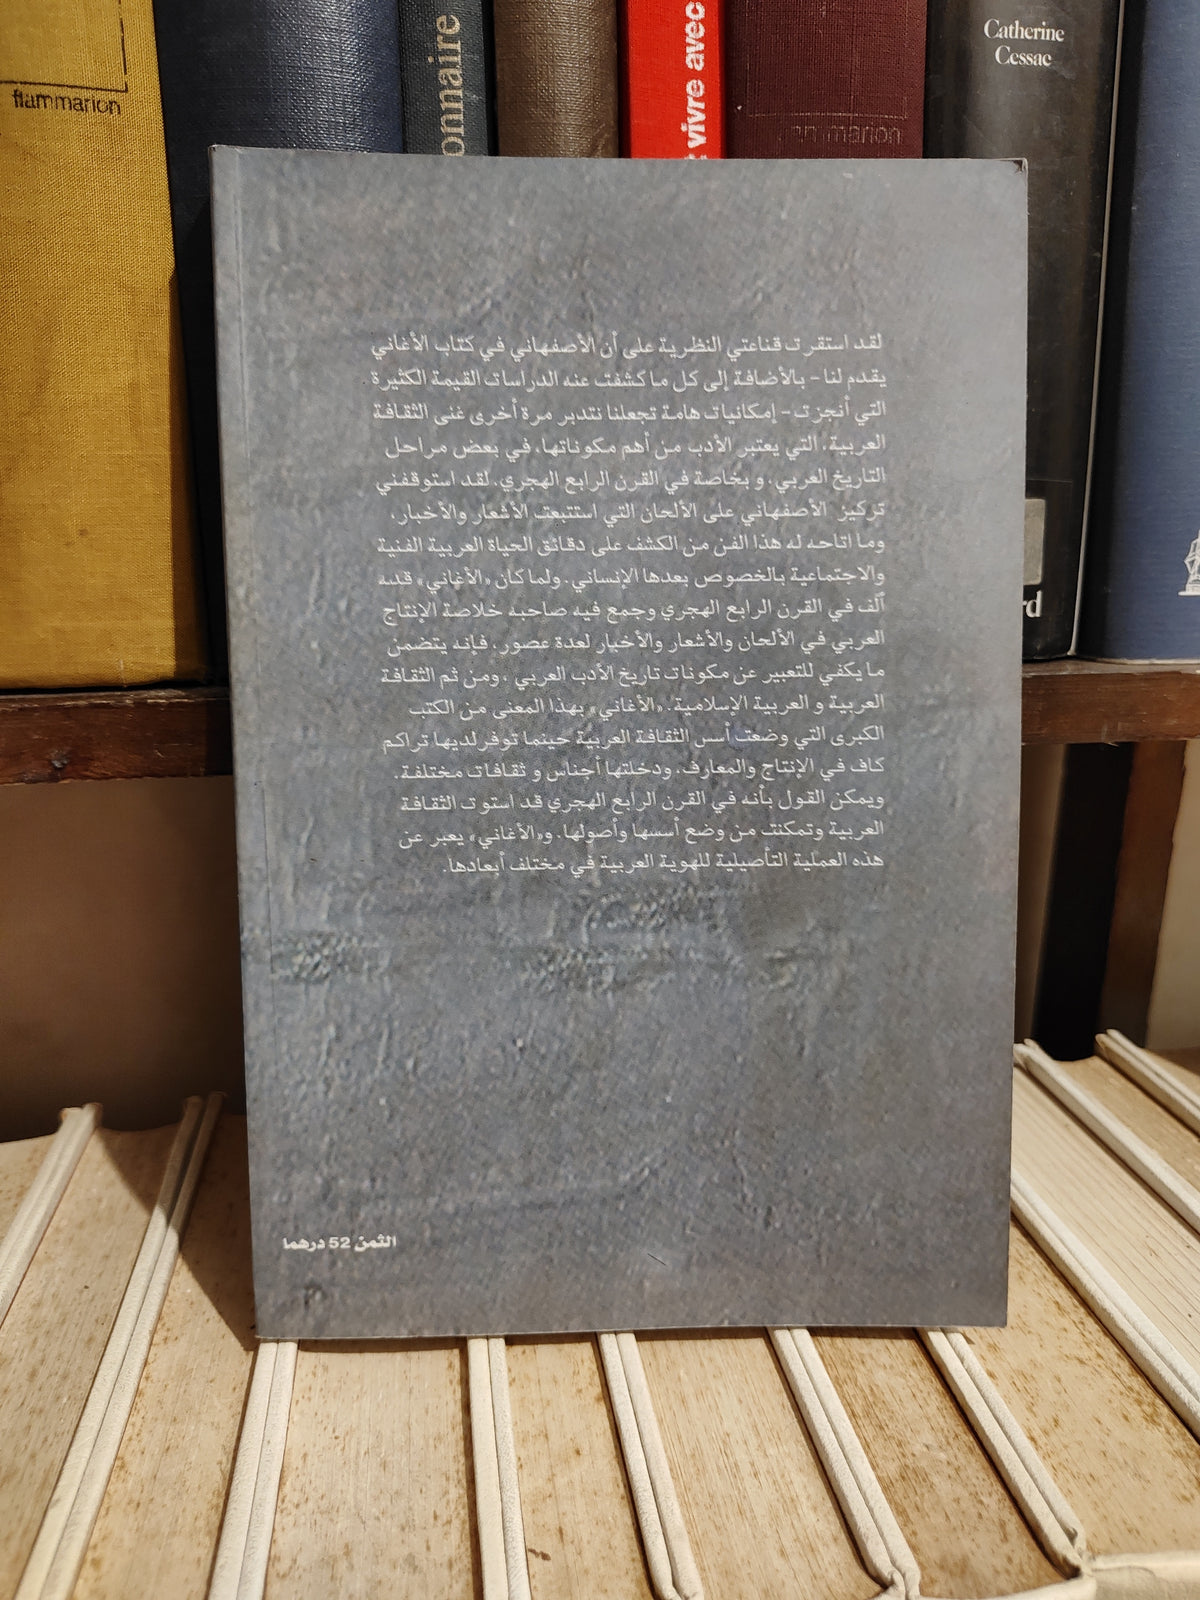 flammarion
onnaire
vivre avec
marion
Catherine
Cessac
rd
لقد استقرت قناعتي النظرية على أن الأصفهاني في كتاب الأغاني
يقدم لنا - بالأضافة إلى كل ما كشفت عنه الدراسات القيمة الكثيرة
التي أنجزت - إمكانيات هامة تجعلنا نتدبر مرة أخرى غنى الثقافة
العربية، التي يعتبر الأدب من أهم مكوناتها، في بعض مراحل
التاريخ العربي، و بخاصة في القرن الرابع الهجري. لقد استوقفني
تركيز الأصفهاني على الألحان التي استتبعت الأشعار والأخبار،
وما اتاحه له هذا الفن من الكشف على دقائق الحياة العربية الفنية
والاجتماعية بالخصوص بعدها الإنساني. ولما كان «الأغاني» قد
ألف في القرن الرابع الهجري وجمع فيه صاحبه خلاصة الإنتاج
العربي في الألحان والأشعار والأخبار لعدة عصور، فإنه يتضمن
ما يكفي للتعبير عن مكونات تاريخ الأدب العربي ، ومن ثم الثقافة
العربية و العربية الإسلامية. «الأغاني» بهذا المعنى من الكتب
الكبرى التي وضعت أسس الثقافة العربية حينما توفر لديها تراكم
كاف في الإنتاج والمعارف، ودخلتها أجناس و ثقافات مختلفة.
ويمكن القول بأنه في القرن الرابع الهجري قد استوت الثقافة
العربية وتمكنت من وضع أسسها وأصولها. و«الأغاني» يعبر عن
هذه العملية التأصيلية للهوية العربية في مختلف أبعادها.
الثمن 52 درهما